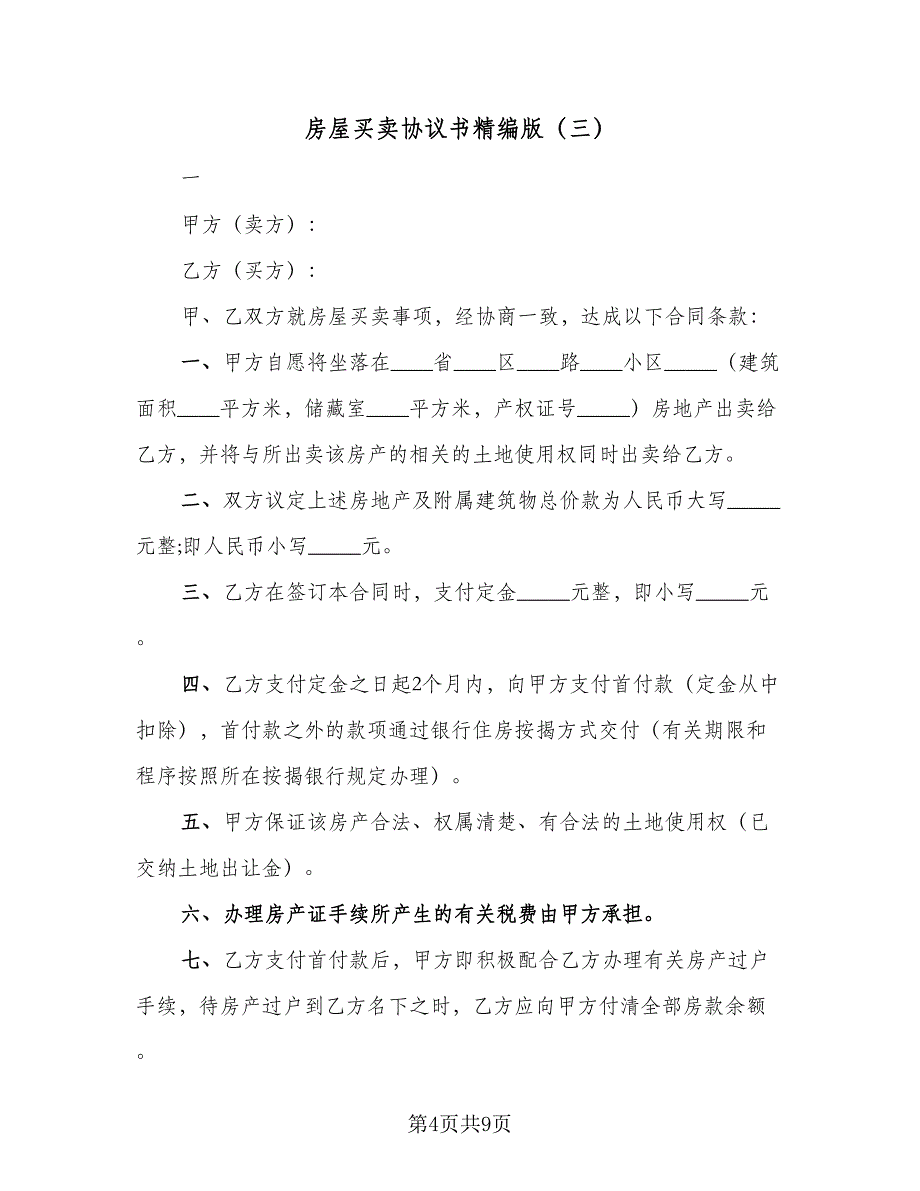 房屋买卖协议书精编版（三）
一
甲方（卖方）：
乙方（买方）：
甲、乙双方就房屋买卖事项，经协商一致，达成以下合同条款：
一、甲方自愿将坐落在____省____区____路____小区_____（建筑
面积____平方米，储藏室____平方米，产权证号_____）房地产出卖给
乙方，并将与所出卖该房产的相关的土地使用权同时出卖给乙方。
二、双方议定上述房地产及附属建筑物总价款为人民币大写_____
元整;即人民币小写_____元。
三、乙方在签订本合同时，支付定金_____元整，即小写_____元
。
四、乙方支付定金之日起2个月内，向甲方支付首付款（定金从中
扣除），首付款之外的款项通过银行住房按揭方式交付（有关期限和
程序按照所在按揭银行规定办理）。
五、甲方保证该房产合法、权属清楚、有合法的土地使用权（已
交纳土地出让金）。
六、办理房产证手续所产生的有关税费由甲方承担。
七、乙方支付首付款后，甲方即积极配合乙方办理有关房产过户
手续，待房产过户到乙方名下之时，乙方应向甲方付清全部房款余额
。
第4页共9页